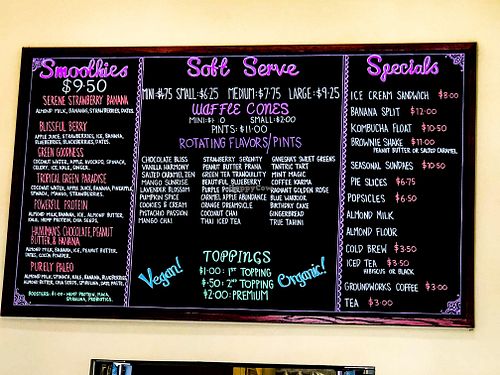 Smoothies
$9.50
SERENE STRAWBERRY BANANA
ALMOND MILK, BANANA, STRAWBERRIES, DATES.
BLISSFUL BERRY
APPLE JUICE, STRAWBERRIES, ICE, BANANA,
BLUEBERRIES, BLACKBERRIES.
GREEN GOODNESS
COCONUT WATER, APPLE, AVOCADO, SPINACH,
CELERY, ICE, KALE, GINGER.
TROPICAL GREEN PARADISE
COCONUT WATER, APPLE JUICE, BANANA, PINEAPPLE,
SPINACH, MANGO, STRAWBERRIES.
POWERFUL PROTEIN
ALMOND MILK, BANANA, ICE, ALMOND BUTTER,
KALE, HEMP PROTEIN, DATES.
HANUMAN'S CHOCOLATE, PEANUT
BUTTER, & BANANA
ALMOND MILK, BANANA, ICE, PEANUT BUTTER,
DATES, COCOA POWDER.
PURELY PALEO
ALMOND MILK, SPINACH, KALE, BANANA, BLUEBERRIES,
ALMOND BUTTER, CHIA SEEDS, SPIRULINA, DATE PASTE.
BOOSTERS: $1.00 - HEMP PROTEIN, MACA,
SPIRULINA, PROBIOTICS.
Soft Serve
MINI: $4.75 SMALL: $6.25 MEDIUM: $7.75 LARGE: $9.25
WAFFLE CONES
MINI: 0 SMALL: $2.00
PINTS: $11.00
ROTATING FLAVORS/PINTS
CHOCOLATE BLISS
VANILLA HARMONY
SALTED CARAMEL ZEN
MANGO SUNRISE
LAVENDER BLOSSOM
PUMPKIN SPICE
COOKIES & CREAM
PISTACHIO PASSION
MANGO CHAI
STRAWBERRY SERENITY
PEANUT BUTTER PRANA
GREEN TEA TRANQUILITY
BEAUTIFUL BLUEBERRY
PURPLE
CARAMEL APPLE ABUNDANCE
ORANGE DREAMSICLE
COCONUT CHAI
THAI ICED TEA
GANESHA'S SWEET GREENS
TANTRIC TART
MINT MAGIC
COFFEE KARMA
RADIANT GOLDEN ROSE
BLUE WARRIOR
BIRTHDAY CAKE
GINGERBREAD
TRUE TAHINI
TOPPINGS
$1.00: 1ST TOPPING
$.50: 2ND TOPPING
$2.00: PREMIUM
Vegan!
Organic!
Specials
ICE CREAM SANDWICH $8.00
BANANA SPLIT $12.00
KOMBUCHA FLOAT $10.50
BROWNIE SHAKE $11.00
PEANUT BUTTER OR SALTED CARAMEL
SEASONAL SUNDAES $10.50
PIE SLICES $6.75
POPSICLES $6.50
ALMOND MILK
ALMOND FLOUR
COLD BREW $3.50
ICED TEA $3.50
HIBISCUS OR BLACK
GROUNDWORKS COFFEE $3.00
TEA $3.00